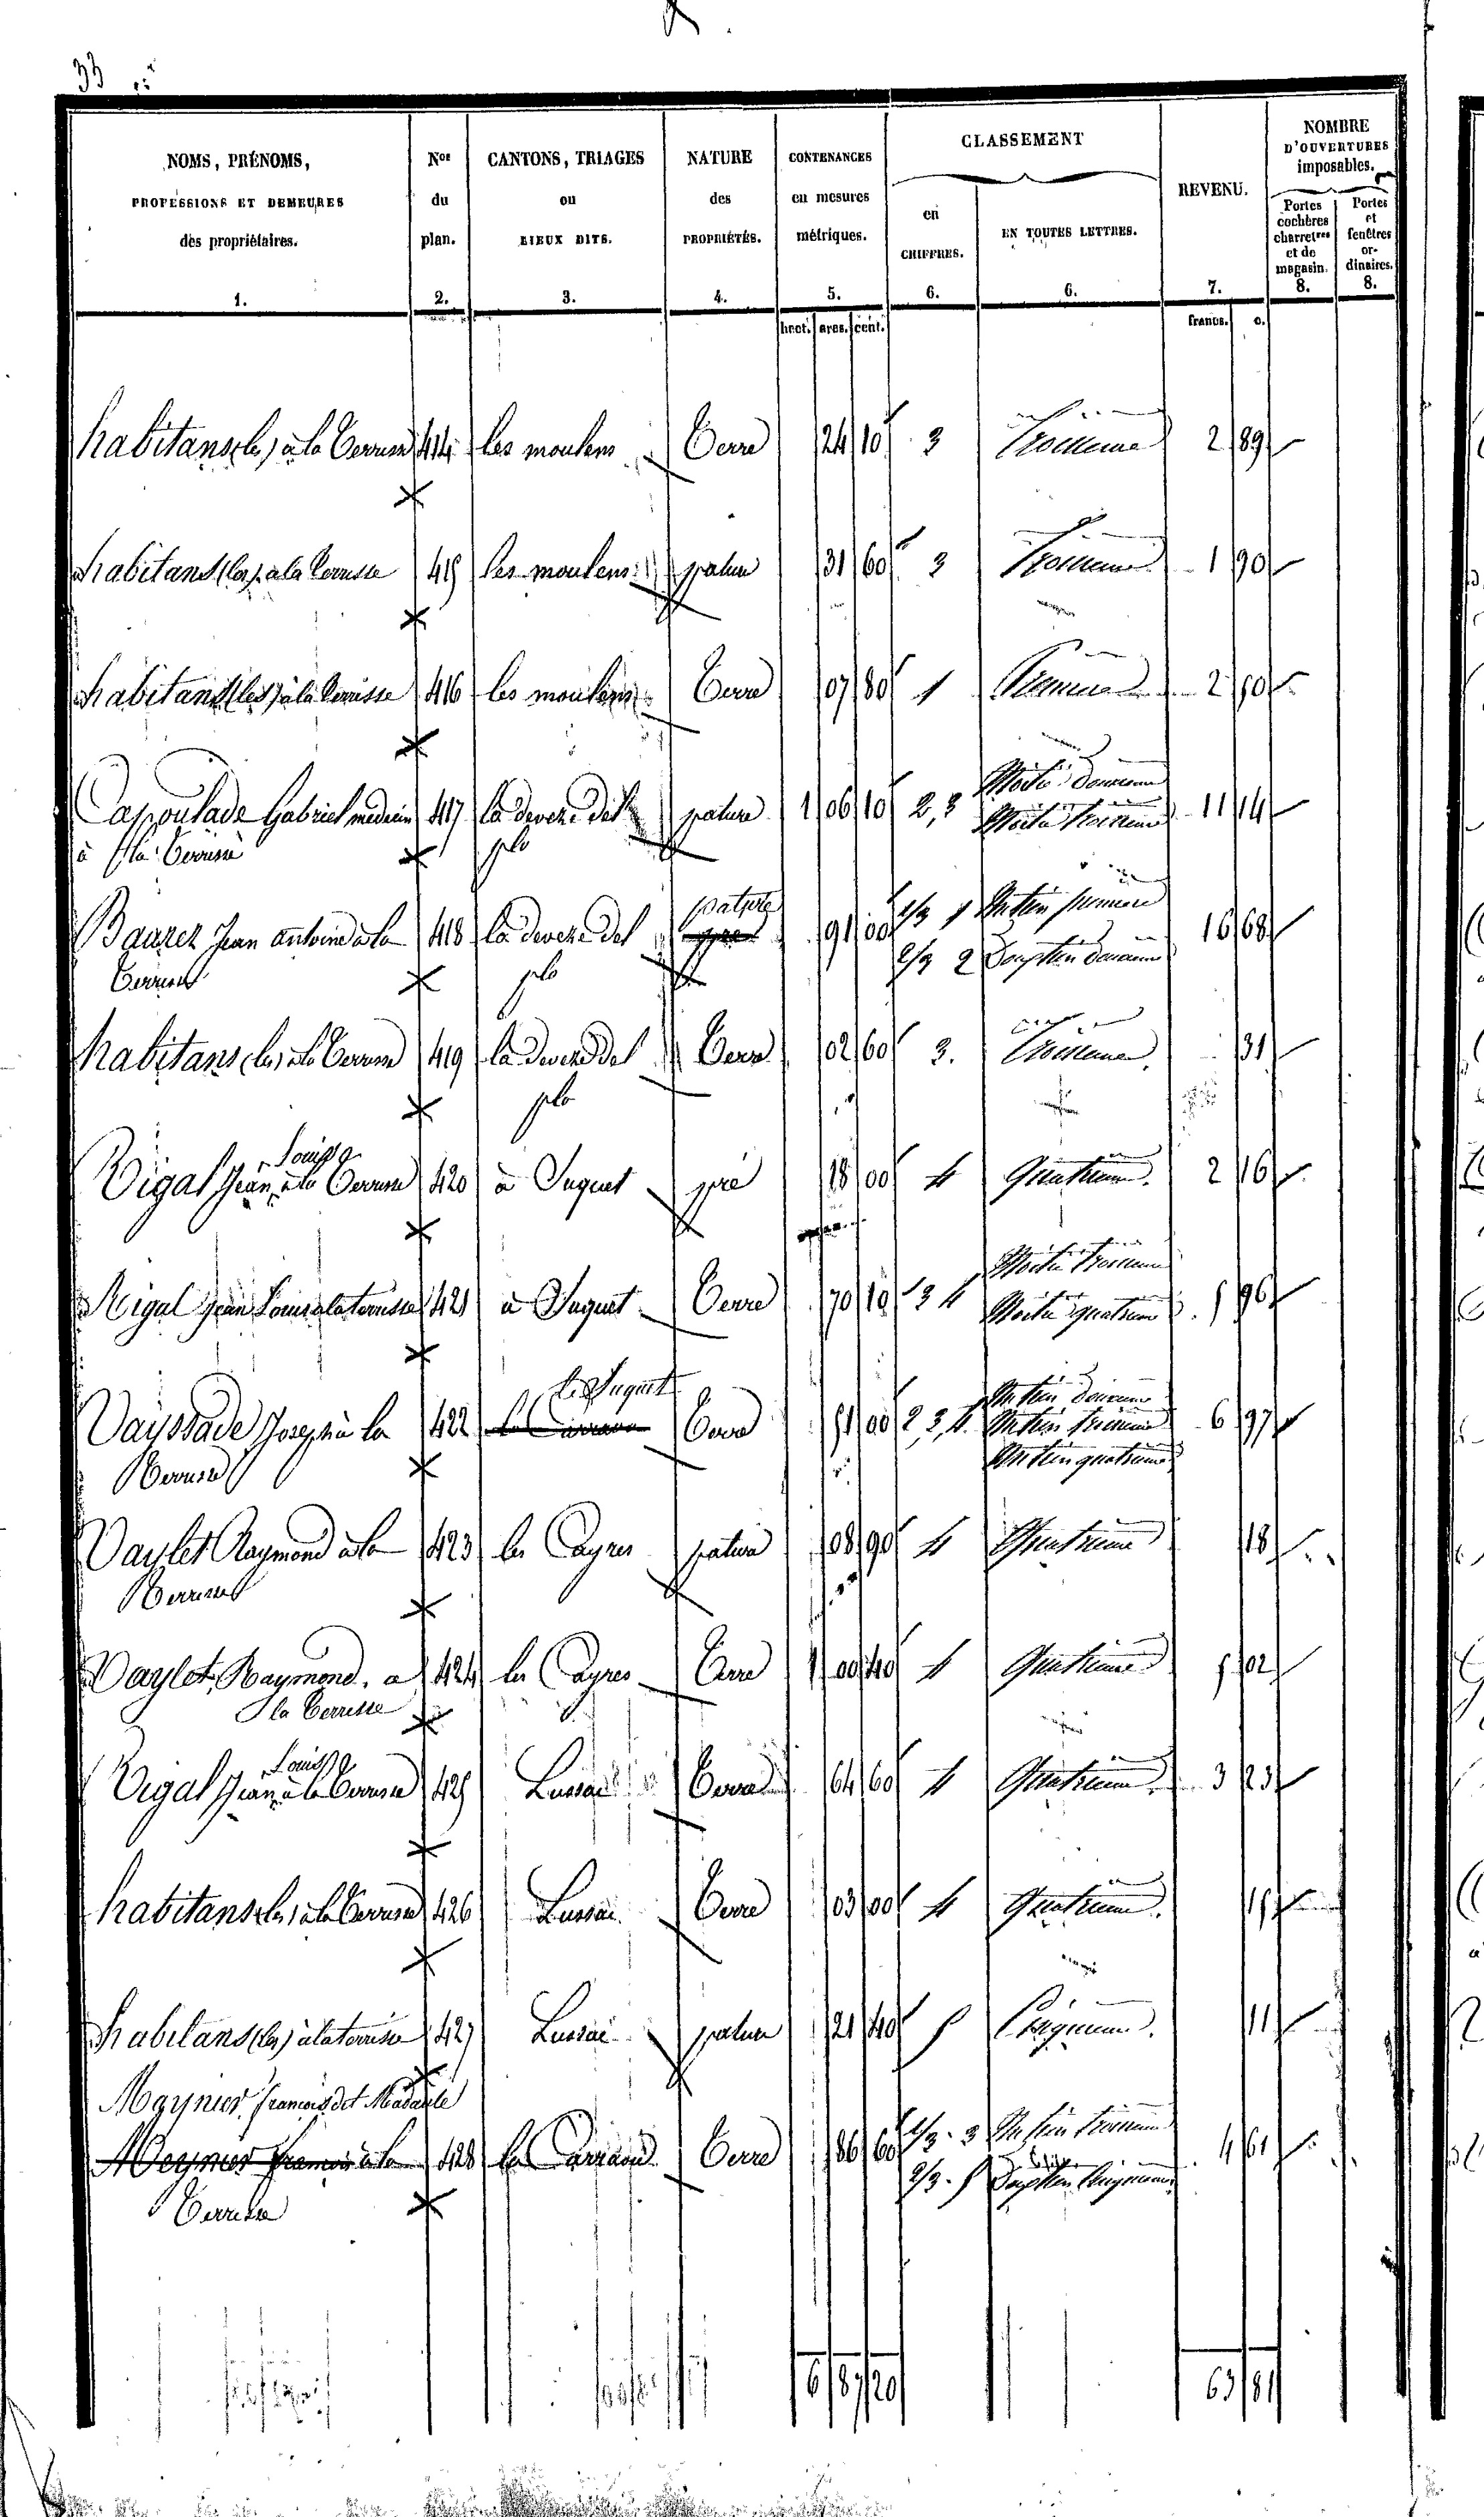 33
NOMS, PRÉNOMS, PROFESSIONS ET DEMEURES des propriétaires. 1.
Nos du plan. 2.
CANTONS, TRIAGES ou LIEUX DITS. 3.
NATURE des PROPRIÉTÉS. 4.
CONTENANCES en mesures métriques. 5.
CLASSEMENT
en CHIFFRES. 6.
EN TOUTES LETTRES. 6.
REVENU. 7.
NOMBRE D'OUVERTURES imposables.
Portes cochères charretres et de magasin. 8.
Portes et fenêtres ordinaires. 8.
hect. ares. cent. francs. c.
habitans (les) à la Terrisse 414 les moulens Terre 24 10 3 Troisieme 2 89
habitans (les) a la Terrisse 415 les moulens pature 31 60 3 Troisieme 1 90
habitans (les) à la Terrisse 416 les moulens Terre 07 80 1 Premiere 2 50
Moitié deuxieme
Gabriel medecin 417 la deveze del pature 1 06 10 2, 3 Moitié troisieme 11 14
à la Terrisse plo
pature 1/3 1 Un tiers premiere
Jean antoine à la 418 la deveze del 91 00 16 68
Terrisse plo 2/3 2 deuxieme
habitans (les) à la Terrisse 419 la deveze del Terre 02 60 3. Troisieme 31
plo
Louis
Rigal Jean à la Terrisse 420 à Puguet pré 18 00 4 Quatrieme. 2 16
Moitié troisieme
Rigal Jean Louis à la Terrisse 421 à Puguet Terre 70 10 3 4 Moitié quatrieme 5 96
le Puguet Un tiers deuxieme
Vayssade Joseph à la 422 Terre 51 00 2 3, 4. Un tiers troisieme 6 97
Terrisse Un tiers quatrieme
Vaylet Raymond à la 423 les Cayres pature 08 90 4 Quatrieme 18
Terrisse
Vaylet, Raymond. a 424 les Cayres Terre 1 00 40 4 Quatrieme 5 02
la Terrisse
Louis
Rigal Jean à la Terrisse 425 Lussai Terre 64 60 4 Quatrieme 3 23
habitans (les) à la Terrisse 426 Lussai Terre 03 00 4 Quatrieme. 15
habitans (les) à la Terrisse 427 Lussai pature 21 40 5 Cinquieme. 11
Meynier françois dit
1/3. 3 Un tiers troisieme
Meynier françois à la 428 Terre 86 60 4 61
Terrisse 2/3. 5 Cinquieme
6 87 20 63 81